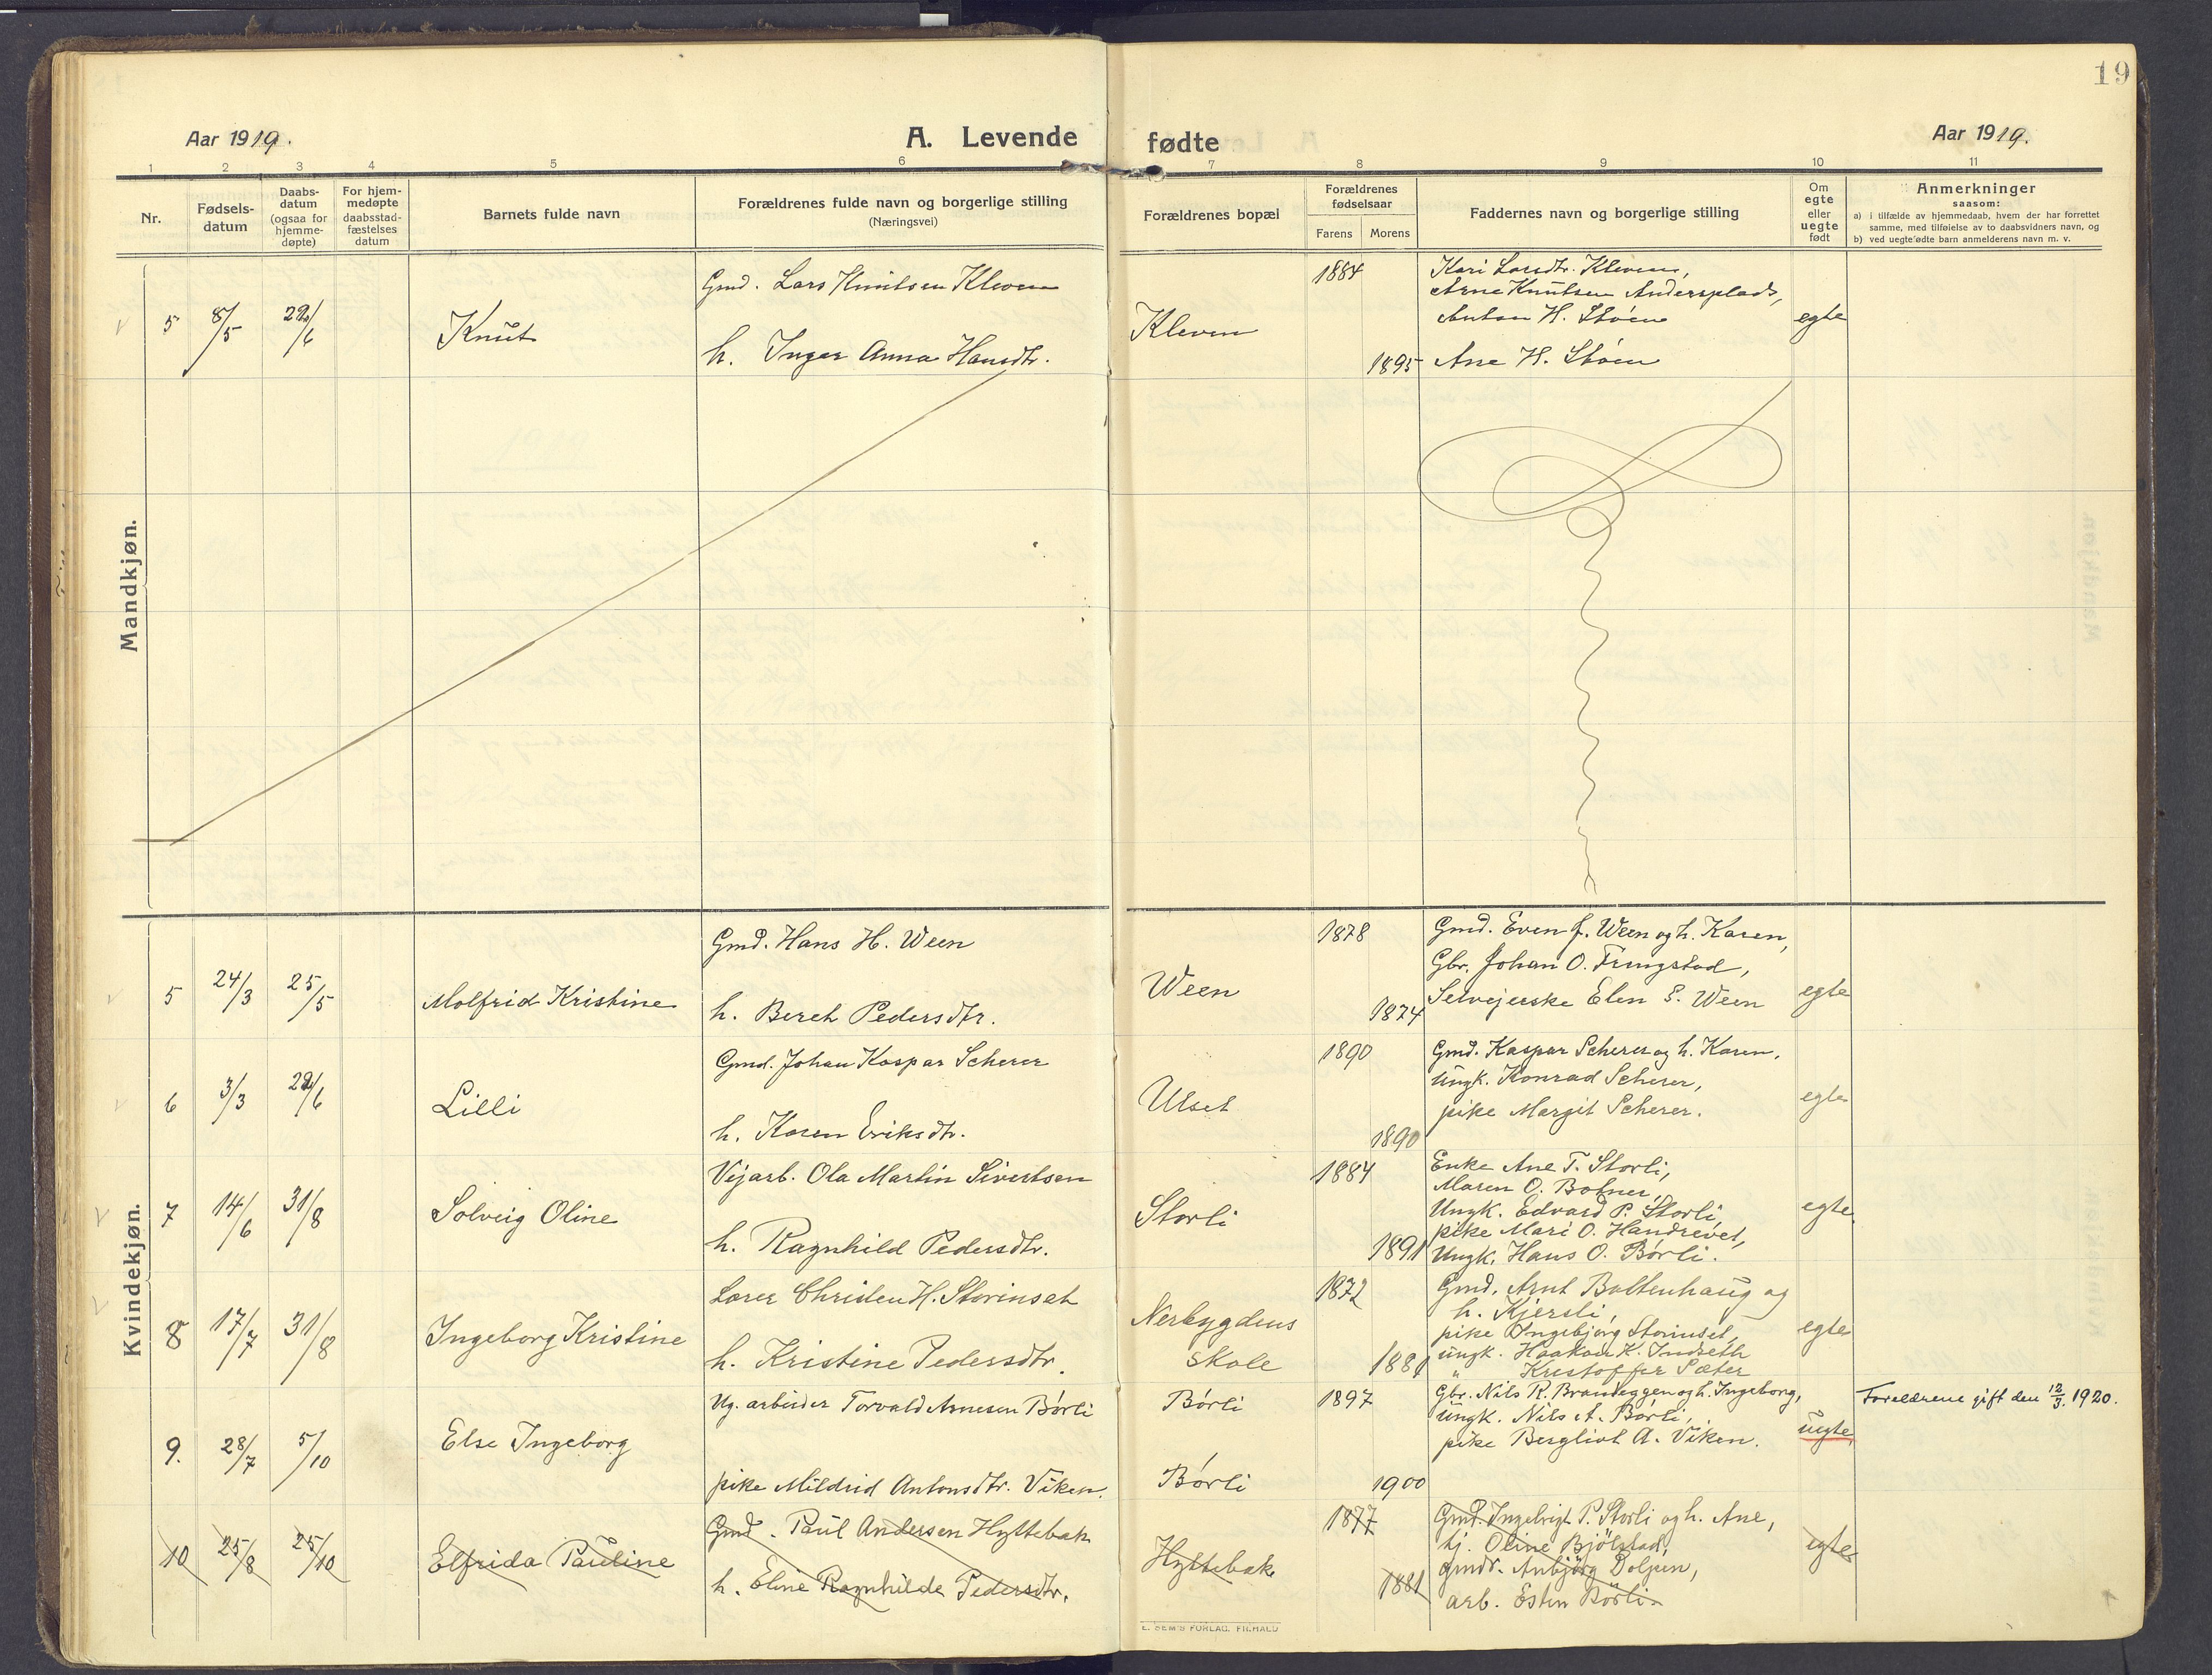 19
Aar 1919.
A. Levende fødte
Aar 1919.
1 2 3 4 5 6 7 8 9 10 11
Nr.
Fødsels-
datum
Daabs-
datum
(ogsaa for
hjemme-
døpte)
For hjem-
medøpte
daabsstad-
fæstelses
datum
Barnets fulde navn
Forældrenes fulde navn og borgerlige stilling
(Næringsvei)
Forældrenes bopæl
Forældrenes
fødselsaar
Farens Morens
Faddernes navn og borgerlige stilling
Om
egte
eller
uegte
født
Anmerkninger
saasom:
a) i tilfælde av hjemmedaab, hvem der har forrettet
samme, med tilføielse av to daabsvidners navn, og
b) ved uegtefødte barn anmelderens navn m. v.
Mandkjøn.
5 8/5 22/6 Knut
Gmd. Lars Knutsen Kleven
h. Inger Anna Hansdtr.
Kleven
1884
1895
Kari Larsdtr. Kleven,
Arne Knutsen Andersplads,
Anton H. Støen
Ane H. Støen
egte
Kvindekjøn.
5 24/3 25/5 Molfrid Kristine
Gmd. Hans H. Ween
h. Beret Pedersdtr.
Ween
1878
1874
Gmd. Even J. Ween og h. Karen,
Gbr. Johan O. Tingstad,
Selvejerske Elen E. Ween
egte
6 3/3 22/6 Lilli
Gmd. Johan Kaspar Scherer
h. Karen Eriksdtr.
Ulset
1890
1890
Gmd. Kaspar Scherer og h. Karen,
Ungk. Konrad Scherer,
pike Margit Scherer.
egte
7 14/6 31/8 Solveig Oline
Vejarb. Ola Martin Sivertsen
h. Ragnhild Pedersdtr.
Storli
1884
1891
Enke Ane T. Storli,
Maren O. Botner,
Ungk. Edvard P. Storli,
pike Mari O. Handrevet,
Ungk. Hans O. Børli.
egte
8 17/7 31/8 Ingeborg Kristine
Lærer Christen H. Storinset
h. Kristine Pedersdtr.
Nerbygdens
skole
1872
1881
Gmd. Arnt Baltenhaug og
h. Kjersti,
pike Ingebjørg Storinset,
ungk. Haakon K. Indseth
" Kristoffer Sæter
egte
9. 28/7 5/10 Else Ingeborg
Ug. arbeider Torvald Arnesen Børli
pike Mildrid Antonsdtr. Viken.
Børli
Børli
1897
1900
Gbr. Nils R. Brandeggen og h. Ingeborg,
Ungk. Nils A. Børli,
pike Bergliot A. Viken.
uegte
Foreldrene gift den 12/3. 1920.
10 25/8 25/10 Elfrida Pauline
Gmd. Paul Andersen Hyttebak
h. Eline Ragnhilde Pedersdtr.
Hyttebak
1877
1881
Gmd. Ingebrigt P. Storli og h. Ane,
tj. Oline Bjölstad,
gmdr. Anbjørg Dolpen,
arb. Esten Börli
egte
E. SEM'S FORLAG. FR.HALD